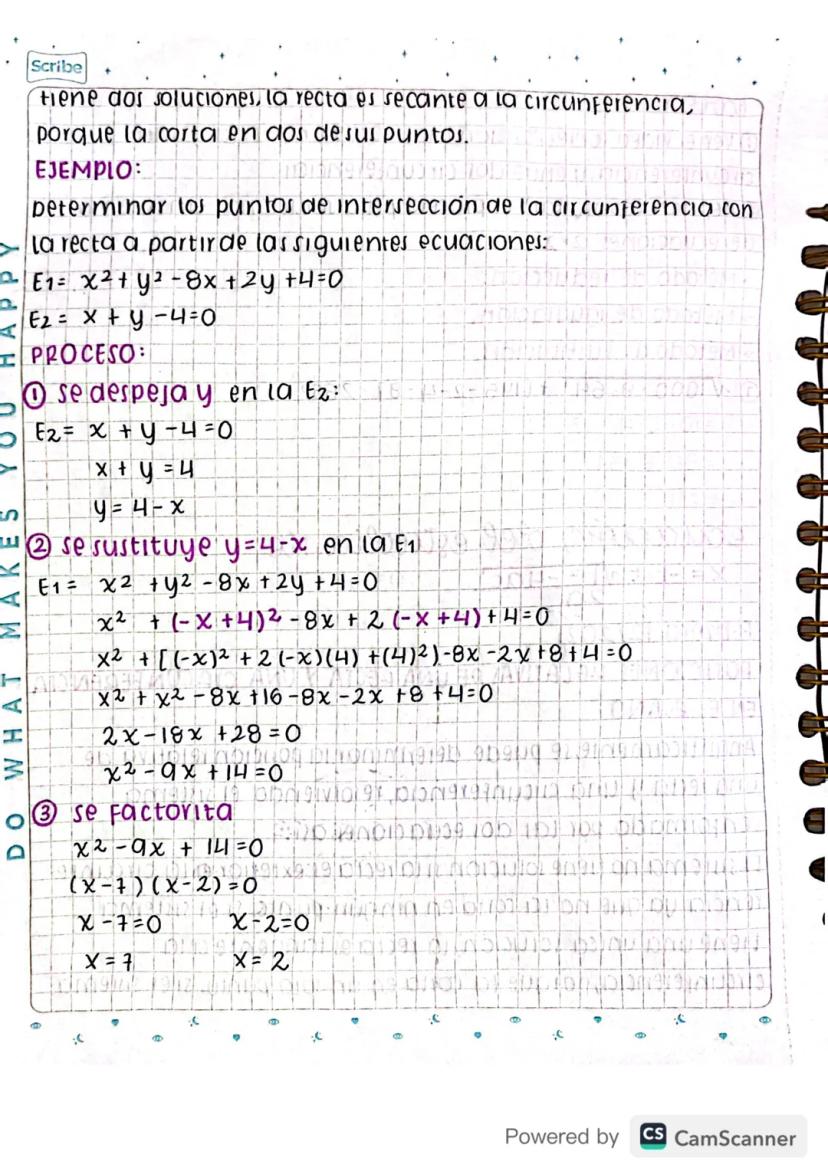 Scribe
tiene dos soluciones, la recta es secante a la circunferencia,
porque la corta en dos de sus puntos.
EJEMPLO:
Determinar los puntos de intersección de la circunferencia con
la recta a partir de las siguientes ecuaciones:
E1= x² + y² - 8x + 2y + 4=0
E2= x + y - 4=0
PROCESO:
① se despeja y en la E2:
E2= x + y - 4 =0
x + y = 4
y= 4 - x
② se sustituye y=4-x en la E1
E1= x² + y² - 8x + 2y + 4=0
x² + (-x +4)² - 8x + 2 (-x +4) + 4=0
x² + [(-x)² + 2(-x)(4) +(4)²)-8x -2x +8+4=0
x² + x² - 8x +16 -8x -2x +8 +4=0
2x -18x +28 =0
x² - 9x +14=0
③ se factoriza
x² - 9x + 14=0
(x-7)(x-2)=0
x -7=0 x-2=0
x = 7 x= 2
DO WHAT MAKES YOU HAPPY
Powered by CS CamScanner